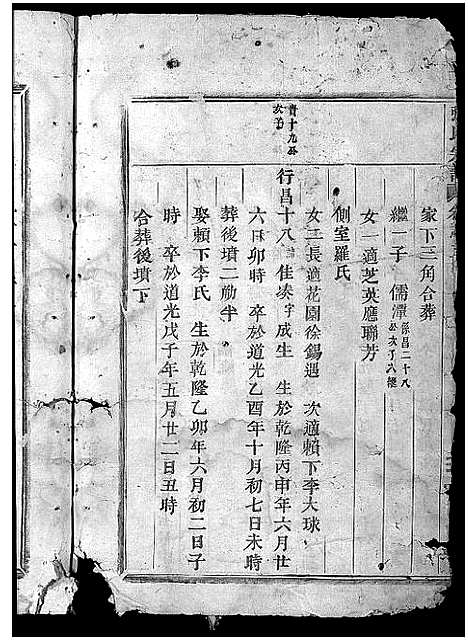 家下三角合葬
繼一子 儒潭 係昌二十八公次子入繼
女一適芝英應聯芳
側室羅氏
女二長適花園徐錫遇 次適賴下李大球
曹十九公次子
行昌十八 佳湊字成生 生於乾隆丙申年六月廿
六日卯時 卒於道光乙酉年十月初七日未時
葬後墳二劤半
娶賴下李氏 生於乾隆乙卯年六月初二日子
時 卒於道光戊子年五月廿二日丑時
合葬後墳下